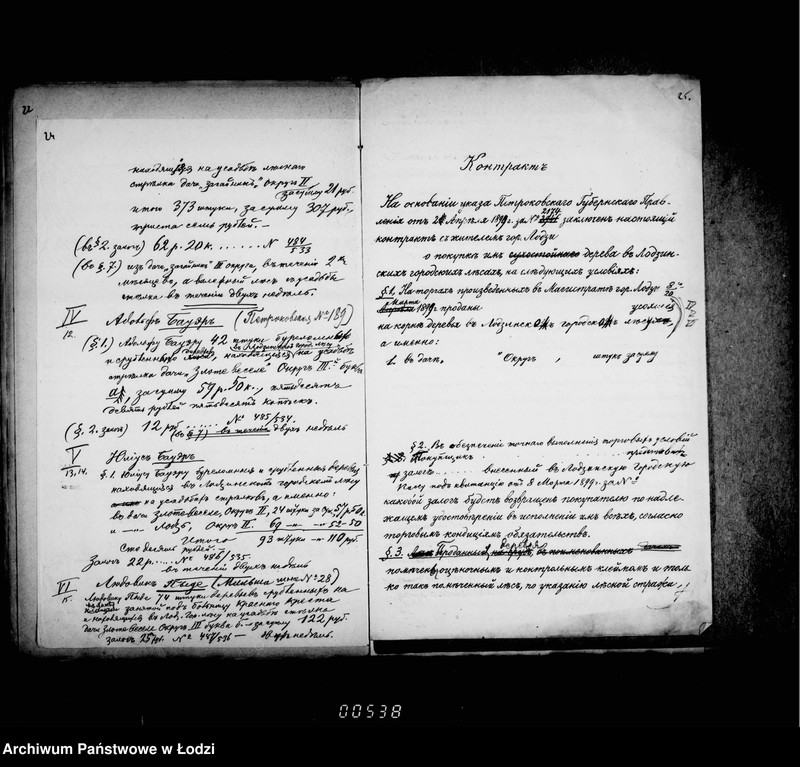 22
24
находящіяся на усадьбѣ лѣснаго
стрѣлка дачи „Загайникъ", Округъ II
за сумму 21 руб.
итого 373 штуки, за сумму 307 руб.,
триста семь рублей. —
(въ § 2. залогъ) 62 р. 20 к. . . . . . . № 484/533
(въ § 7.) изъ дачи „Загайникъ" III округа, въ теченіи 2хъ
въ теченіи двухъ недѣль.
IV
12.
Адольфъ Бауэръ (Петроковская № 189)
(§ 1.) Адольфу Бауэру 42 штуки буреломныхъ
и срубленныхъ находящійся на усадьбѣ
стрѣлка дачи „Злоте веселе" Округъ III
а), за сумму 59 р. 50 к., пятьдесятъ
девять рублей пятьдесятъ копѣекъ.
(§ 2. залогъ) 12 руб. . . . . . № 485/534.
(въ § 7) въ теченіи двухъ недѣль
V
13, 14.
Юліусъ Бауэръ
§ 1. Юліусу Бауэру буреломныя и срубленныя деревья
находящіяся въ Лодзинскомъ городскомъ лѣсу
на усадьбѣ стрѣлковъ, а именно:
въ дачи Злоте веселе, Округъ II, 24 штуки за сумму 57 р 50 к.
и —„— Лодзь, Округъ II. 69 —„— —„— 52-50
Итого 93 штуки —„— 110 руб.
Сто десять рублей.
Залогъ 22 р. . . . . № 486/535.
въ теченіи двухъ недѣль
VI
15.
Людовикъ Паде (Мильша № 28)
Людовику Паде 74 штуки деревьевъ срубленныхъ на
занятой подъ больницу Краснаго креста
и находящіяся въ Лодз. Гор. лѣсу на усадьбѣ стрѣлка
дачи Злоте веселе Округъ III буква б. — за сумму 122 руб.
залогъ 25 руб. № 487/536 — двухъ недѣль.
25.
Контрактъ
На основаніи указа Петроковскаго Губернскаго Прав-
ленія отъ 24 Апрѣля 1899 г. за № 2174 заключенъ настоящій
контрактъ съ жителемъ гор. Лодзи
о покупкѣ имъ сухостойнаго дерева въ Лодзин-
скихъ городскихъ лѣсахъ, на слѣдующихъ условіяхъ:
§ 1. На торгахъ произведенныхъ въ Магистратѣ гор. Лодзи
Марта 1899 г. проданы
на корнѣ деревья въ Лодзинскомъ городскомъ лѣсу,
а именно:
1. Въ дачи „ " Округъ , штукъ за сумму
§ 2. Въ обезпеченіе точнаго выполненія торговыхъ условій
Покупщикъ
залогъ . . . . . . . внесенный въ Лодзинскую городскую
Кассу подъ квитанцію отъ 8 Марта 1899 г. за №
каковой залогъ будетъ возвращенъ покупателю по надле-
жащемъ удостовѣреніи въ исполненіи имъ всѣхъ, согласно
торговымъ кондиціямъ, обязательствъ.
§ 3. Проданныя деревья
помѣчены оцѣночнымъ и контрольнымъ клеймами и толь
ко такъ помѣченный лѣсъ, по указанію лѣсной стражи,
00538
Archiwum Państwowe w Łodzi